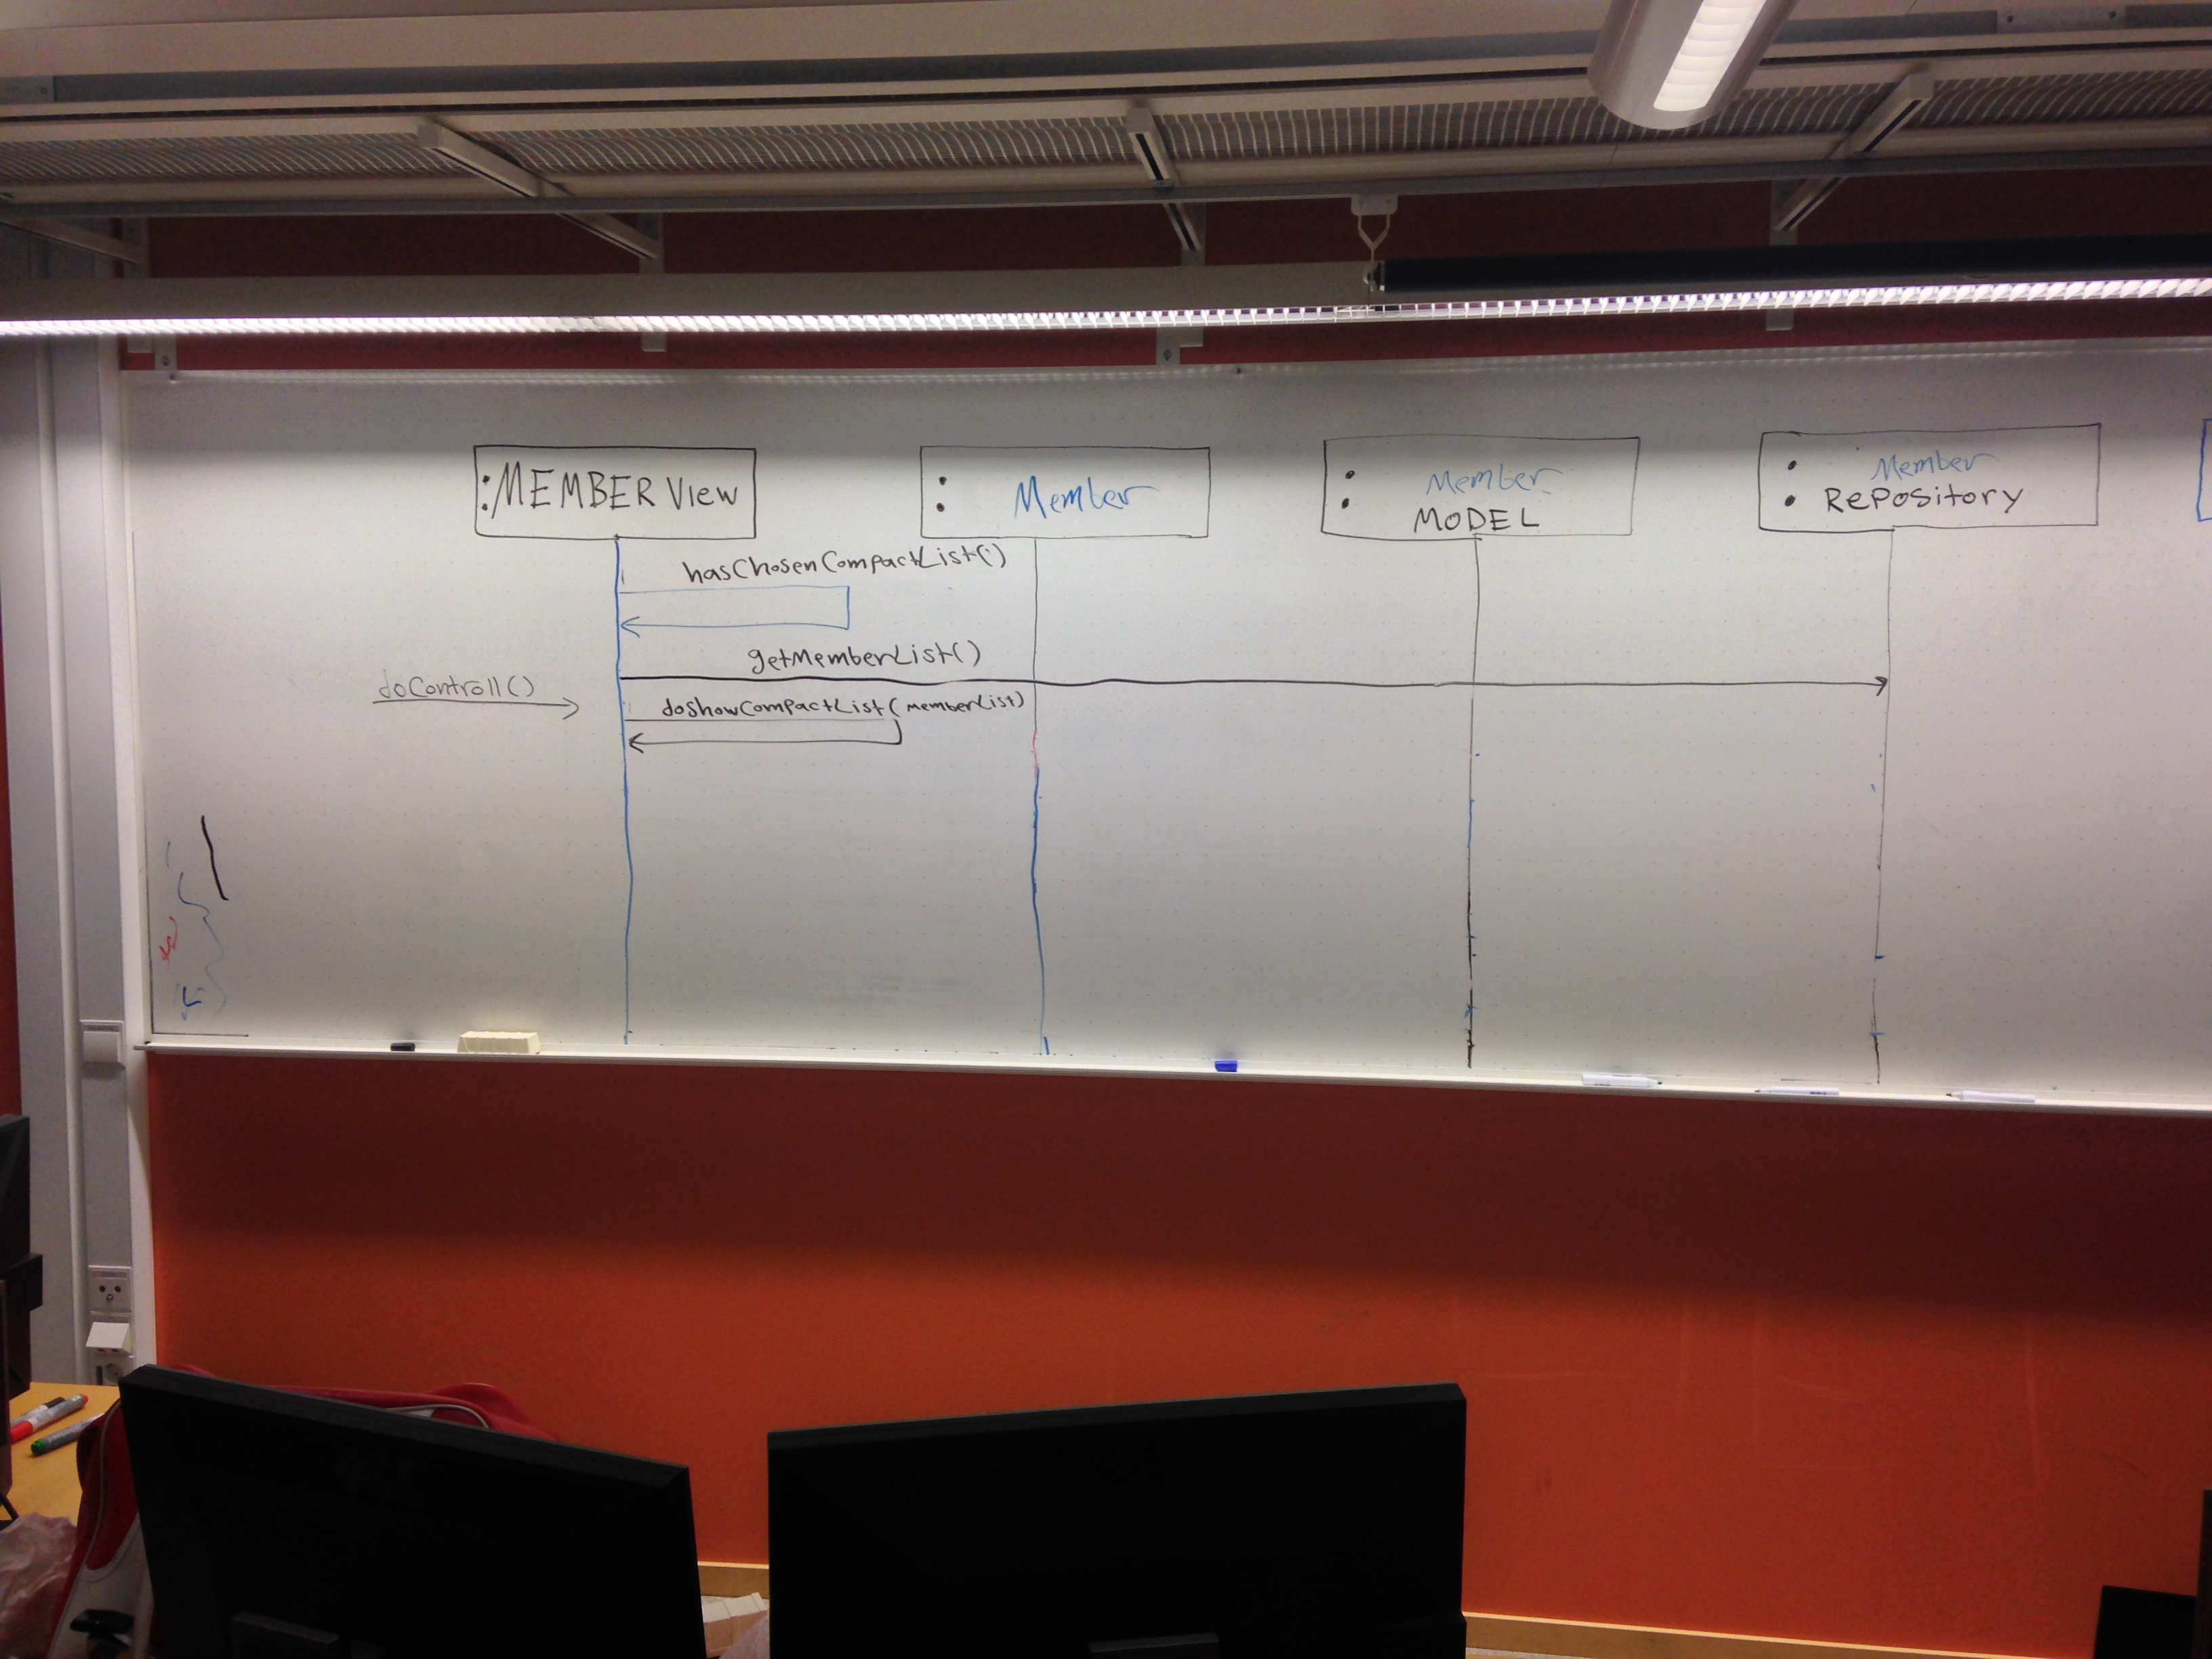 :MEMBER View
: Member
: Member
MODEL
: Member
Repository
hasChosenCompactList()
getMemberList()
doControll()
doShowCompactList(memberList)